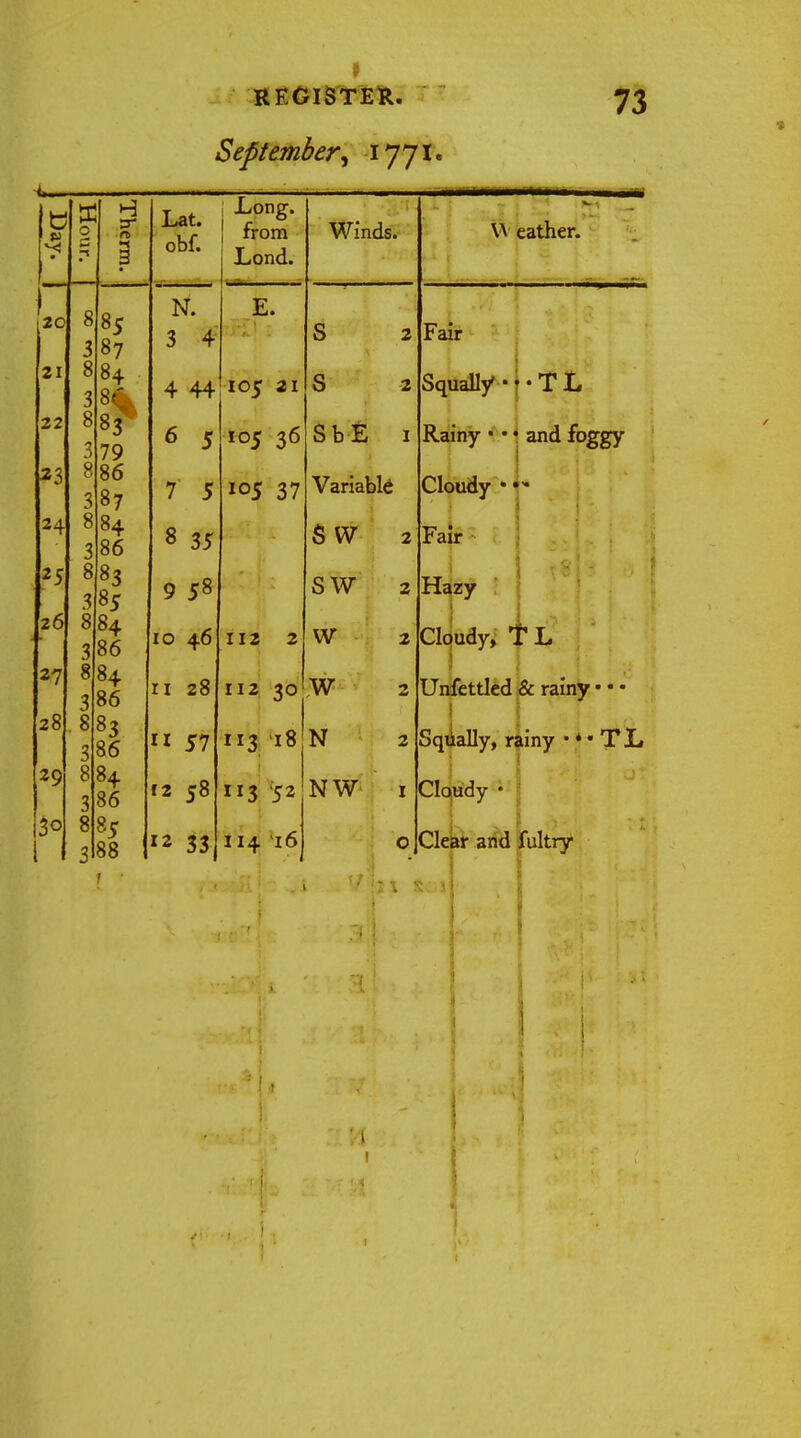 REGISTER. 73
September, 1771.
Day. Hour. Therm. Lat. obf. Long. from Lond. Winds. Weather.
N. E.
20 8 85 3 4 S 2 Fair
3 87
21 8 84 4 44 105 21 S 2 Squally • • • T L
3
22 8 83 6 5 105 36 S b E 1 Rainy • • • and foggy
3 79
23 8 86 7 5 105 37 Variable Cloudy • • •
3 87
24 8 84 8 35 S W 2 Fair
3 86
25 8 83 9 58 S W 2 Hazy
3 85
26 8 84 10 46 112 2 W 2 Cloudy, T L
3 86
27 8 84 11 28 112 30 W 2 Unfettled & rainy • • •
3 86
28 8 83 11 57 113 18 N 2 Squally, rainy • • • T L
3 86
29 8 84 12 58 113 52 N W 1 Cloudy •
3 86
30 8 85 12 33 114 16 0 Clear and fultry
3 88